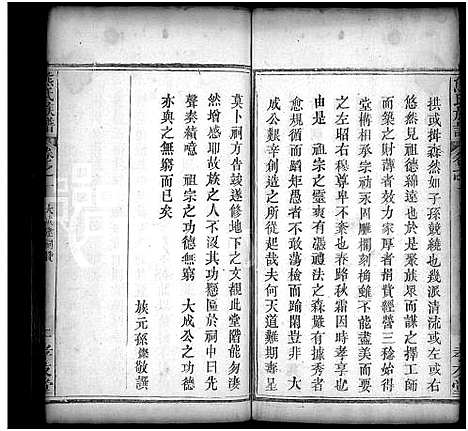 拱或揖森然如子孫競繞也幾派清流
悠然見祖德綿遠也於是聚族眾而謀之擇工師
而築之財薄者效力家厚者捐貲三稔始得
堂構相承可因雕欄刻桷雖不能盡美而要
之左昭右穆尊卑不紊也春露秋霜因時孝享也
由是 祖宗之靈爽有憑禮法之森嚴有據秀者
愈循循而不敢蕩檢愚者亦兢兢而踰閑豈非 大
成公艱辛造就起哉夫何天道難壽呈
莫卜祠方告竣遂修地下之文覩此堂階能勿淒
然增感耶故族之人不沒其功懸匾於祠中曰先
聲奏績噫 祖宗之功德無窮 大成公之功德
亦與之無窮而已矣
族元孫 敬譔
熊氏族譜
卷之一
孝友堂